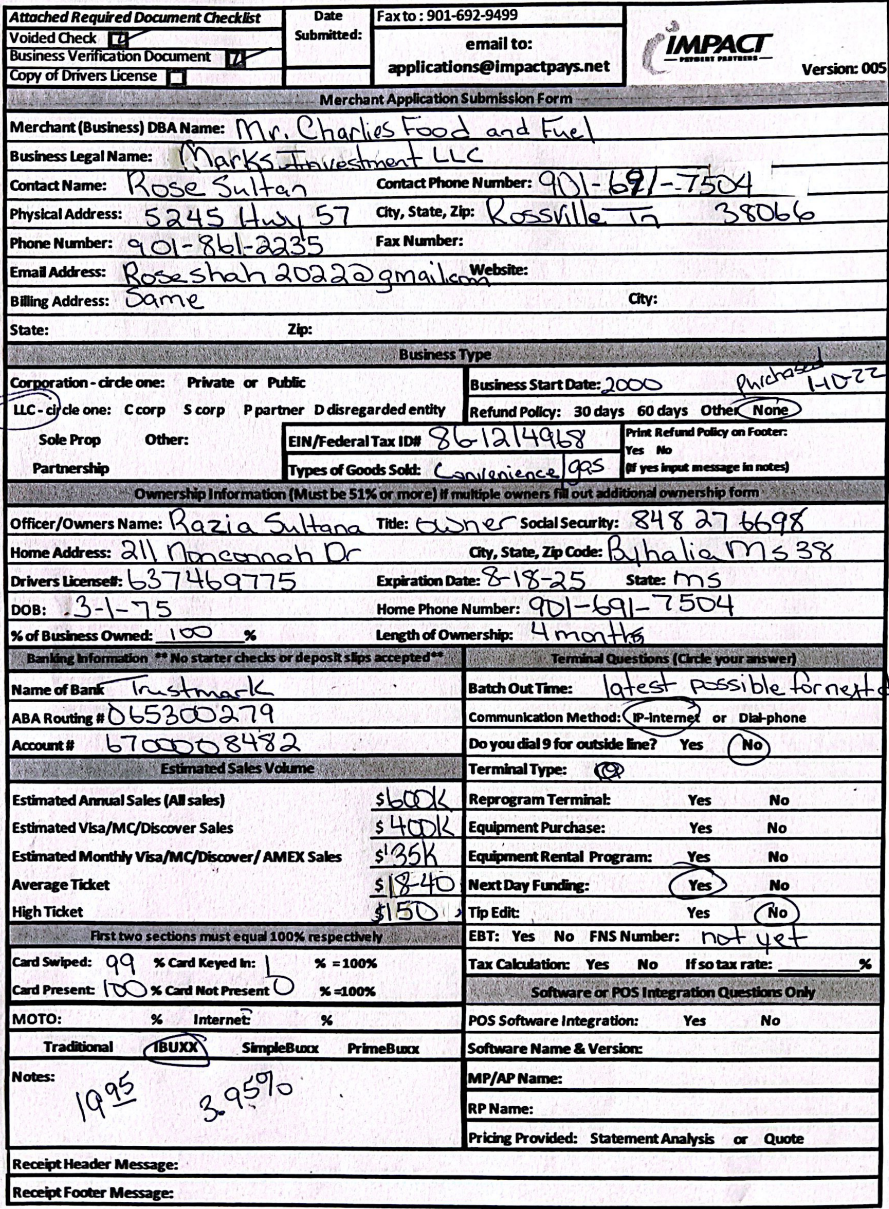 Attached Required Document Checklist
Voided Check
Business Verification Document
Copy of Drivers License
Date Submitted:
Fax to : 901-692-9499
email to:
applications@impactpays.net
IMPACT
PAYMENT PARTNERS
Version: 005
Merchant Application Submission Form
Merchant (Business) DBA Name: Mr. Charlies Food and Fuel
Business Legal Name: Marks Investment LLC
Contact Name: Rose Sultan Contact Phone Number: 901-691-7504
Physical Address: 5245 Hwy 57 City, State, Zip: Rossville Tn 38066
Phone Number: 901-861-2235 Fax Number:
Email Address: Roseshah2022@gmail.com Website:
Billing Address: Same City:
State: Zip:
Business Type
Corporation - circle one: Private or Public
LLC - circle one: C corp S corp P partner D disregarded entity
Sole Prop Other:
Partnership
Business Start Date: 2000 Purchased 1-10-22
Refund Policy: 30 days 60 days Other None
EIN/Federal Tax ID# 86-1214968
Print Refund Policy on Footer:
Yes No
(If yes input message in notes)
Types of Goods Sold: Convenience gas
Ownership Information (Must be 51% or more) If multiple owners fill out additional ownership form
Officer/Owners Name: Razia Sultana Title: owner Social Security: 848 27 6698
Home Address: 211 Nonconnah Dr City, State, Zip Code: Byhalia Ms 38
Drivers License#: 637469775 Expiration Date: 8-18-25 State: ms
DOB: 3-1-75 Home Phone Number: 901-691-7504
% of Business Owned: 100 % Length of Ownership: 4 months
Banking Information ** No starter checks or deposit slips accepted**
Name of Bank Trustmark
ABA Routing # 065300279
Account # 6700008482
Estimated Sales Volume
Estimated Annual Sales (All sales) $600K
Estimated Visa/MC/Discover Sales $400K
Estimated Monthly Visa/MC/Discover/ AMEX Sales $35K
Average Ticket $18-40
High Ticket $150
First two sections must equal 100% respectively
Card Swiped: 99 % Card Keyed In: 1 % =100%
Card Present: 100 % Card Not Present 0 % =100%
MOTO: % Internet: %
Traditional IBUXX SimpleBuxx PrimeBuxx
Notes:
19.95 3.95%
Terminal Questions (Circle your answer)
Batch Out Time: latest possible for next
Communication Method: IP-Internet or Dial-phone
Do you dial 9 for outside line? Yes No
Terminal Type:
Reprogram Terminal: Yes No
Equipment Purchase: Yes No
Equipment Rental Program: Yes No
Next Day Funding: Yes No
Tip Edit: Yes No
EBT: Yes No FNS Number: not yet
Tax Calculation: Yes No If so tax rate: %
Software or POS Integration Questions Only
POS Software Integration: Yes No
Software Name & Version:
MP/AP Name:
RP Name:
Pricing Provided: Statement Analysis or Quote
Receipt Header Message:
Receipt Footer Message: